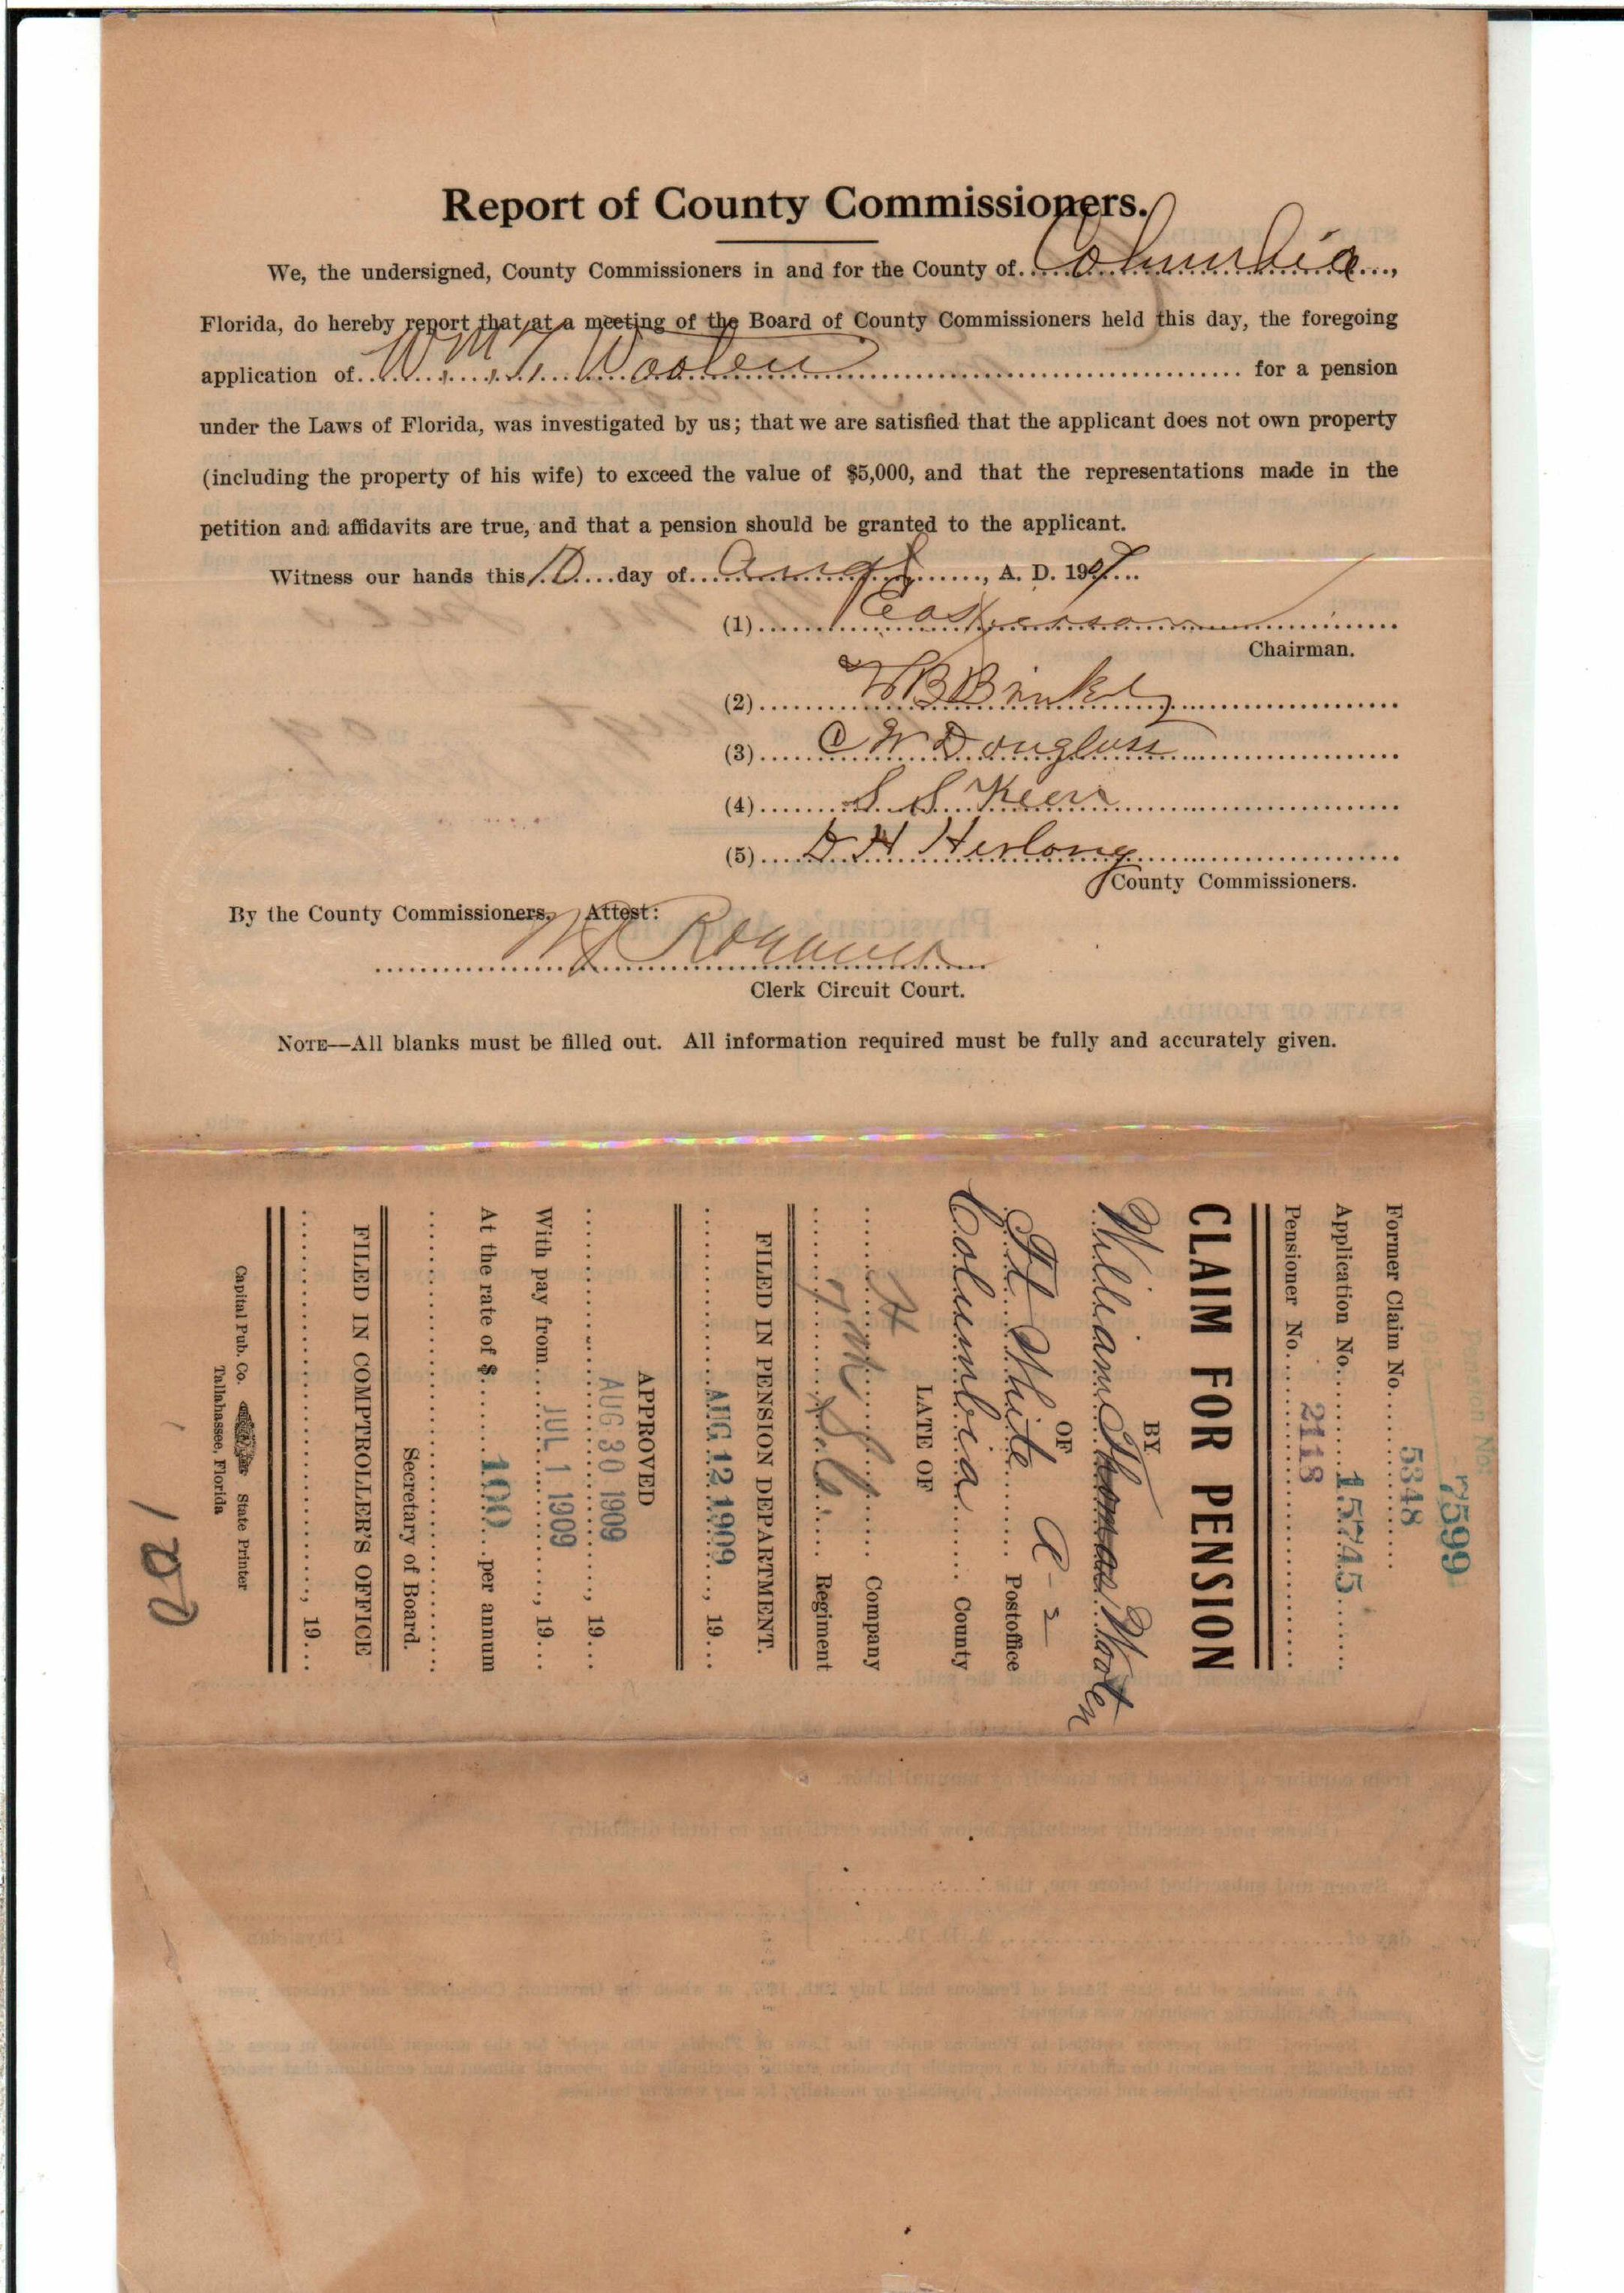 Report of County Commissioners.
We, the undersigned, County Commissioners in and for the County of Columbia,
Florida, do hereby report that at a meeting of the Board of County Commissioners held this day, the foregoing
application of Wm T. Woolen for a pension
under the Laws of Florida, was investigated by us; that we are satisfied that the applicant does not own property
(including the property of his wife) to exceed the value of $5,000, and that the representations made in the
petition and affidavits are true, and that a pension should be granted to the applicant.
Witness our hands this 10 day of Augt, A. D. 1909
(1)
Chairman.
(2) W B Brinkly
(3) C W Douglass
(4) S S Keen
(5) D H Herlong
County Commissioners.
By the County Commissioners, Attest:
Clerk Circuit Court.
NOTE—All blanks must be filled out. All information required must be fully and accurately given.
Pension No:
7599
Former Claim No. 5348
Application No. 15745
Pensioner No. 2118
CLAIM FOR PENSION
BY
William Thomas Woolen
OF
Ft White Postoffice
a-2
Columbia County
LATE OF
H Company
Regiment
FILED IN PENSION DEPARTMENT.
AUG 12 1909, 19
APPROVED
AUG 30 1909, 19
With pay from JUL 1 1909, 19
At the rate of $ 100 per annum
Secretary of Board.
FILED IN COMPTROLLER'S OFFICE
, 19
Capital Pub. Co. State Printer
Tallahassee, Florida